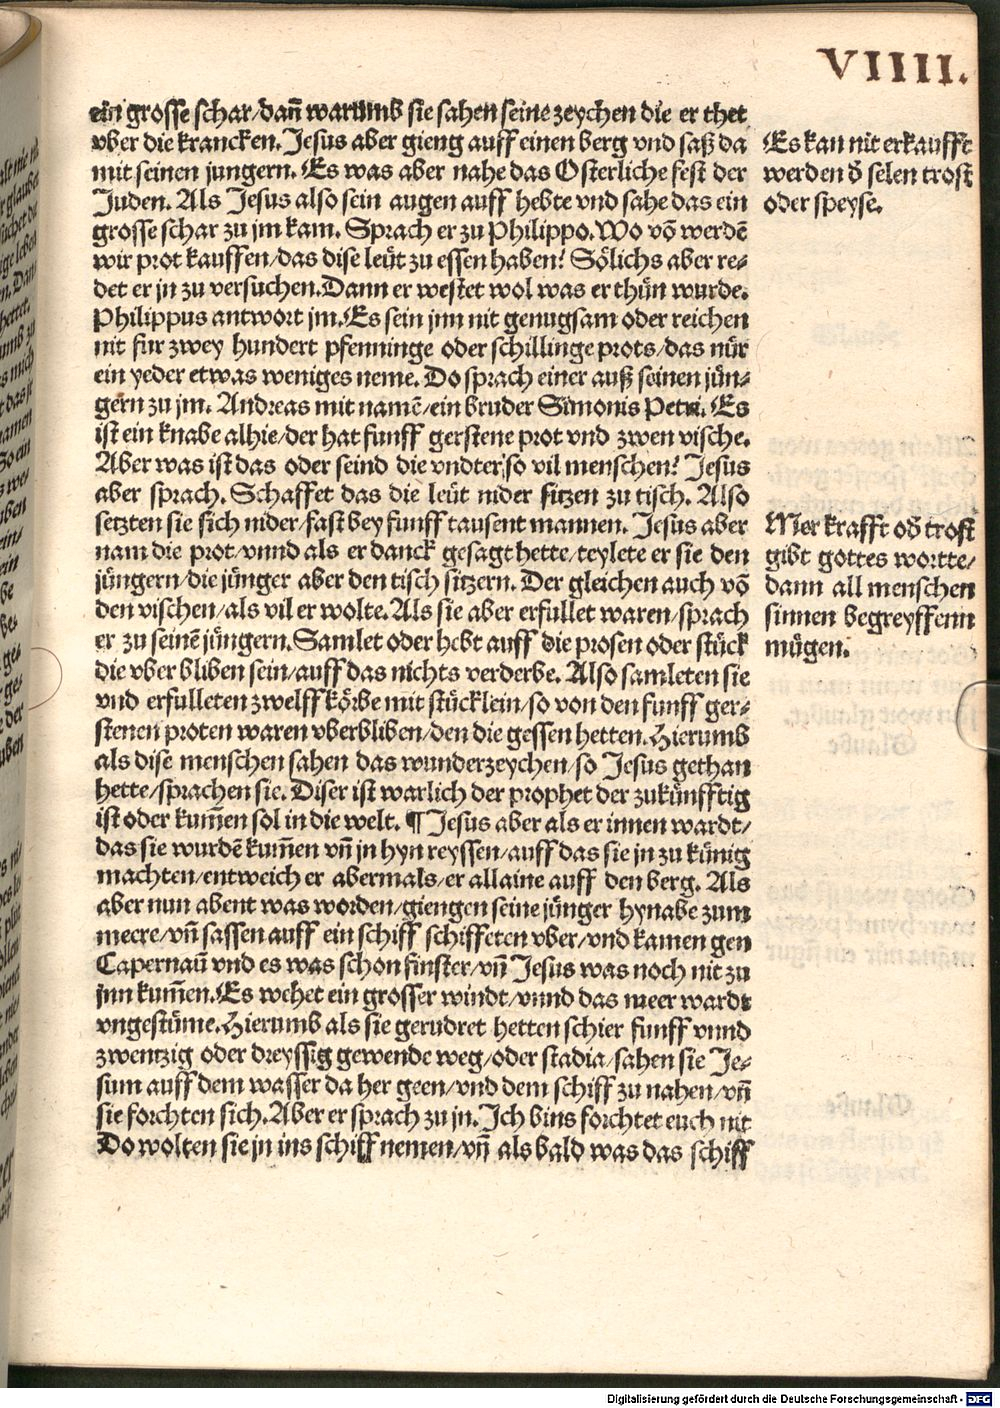 VIIII.
ein grosse schar/dañ warumb sie sahen seine zeychen die er thet
vber die krancken. Jesus aber gieng auff einen berg vnd saß da
mit seinen jungern. Es was aber nahe das Osterliche fest der
Juden. Als Jesus also sein augen auff hebte vnd sahe das ein
grosse schar zu jm kam. Sprach er zu Philippo. Wo võ werdẽ
wir prot kauffen/das dise leüt zu essen haben? Sölichs aber re-
det er jn zu versuchen. Dann er westet wol was er thün wurde.
Philippus antwort jm. Es sein jnn nit genugsam oder reichen
nit fur zwey hundert pfenninge oder schillinge prots/das nür
ein yeder etwas weniges neme. Do sprach einer auß seinen jün-
gern zu jm. Andreas mit namẽ/ein bruder Simonis Petri. Es
ist ein knabe alhie/der hat funff gerstene prot vnd zwen vische.
Aber was ist das oder seind die vndter so vil menschen? Jesus
aber sprach. Schaffet das die leüt nider sitzen zu tisch. Also
setzten sie sich nider/fast bey funff tausent mannen. Jesus aber
nam die prot/vnnd als er danck gesagt hette/teylete er sie den
jüngern/die jünger aber den tisch sitzern. Der gleichen auch võ
den vischen/als vil er wolte. Als sie aber erfullet waren/sprach
er zu seinẽ jüngern. Samlet oder hebt auff die prosen oder stück
die vber bliben sein/auff das nichts verderbe. Also samleten sie
vnd erfulleten zwelff körbe mit stücklein/so von den funff ger-
stenen proten waren vberbliben/den die gessen hetten. Hierumb
als dise menschen sahen das wunderzeychen/so Jesus gethan
hette/sprachen sie. Diser ist warlich der prophet der zukünfftig
ist oder kum̃en sol in die welt. ¶ Jesus aber als er innen wardt/
das sie wurdẽ kum̃en vñ jn hyn reyssen/auff das sie jn zu künig
machten/entweich er abermals/er allaine auff den berg. Als
aber nun abent was worden/giengen seine jünger hynabe zum
meere/vñ sassen auff ein schiff schiffeten vber/vnd kamen gen
Capernaũ vnd es was schon finster/vñ Jesus was noch nit zu
jnn kum̃en. Es wehet ein grosser windt/vnnd das meer wardt
vngestüme. Hierumb als sie gerudret hetten schier funff vnnd
zwentzig oder dreyssig gewende weg/oder stadia/sahen sie Je-
sum auff dem wasser da her geen/vnd dem schiff zu nahen/vñ
sie forchten sich. Aber er sprach zu jn. Ich bins forchtet euch nit
Do wolten sie jn ins schiff nemen/vñ als bald was das schiff
Es kan nit erkaufft
werden ð selen trost
oder speyse.
Mer krafft oð trost
gibt gottes wortte/
dann all menschen
sinnen begreyffenn
mügen.
Digitalisierung gefördert durch die Deutsche Forschungsgemeinschaft - DFG